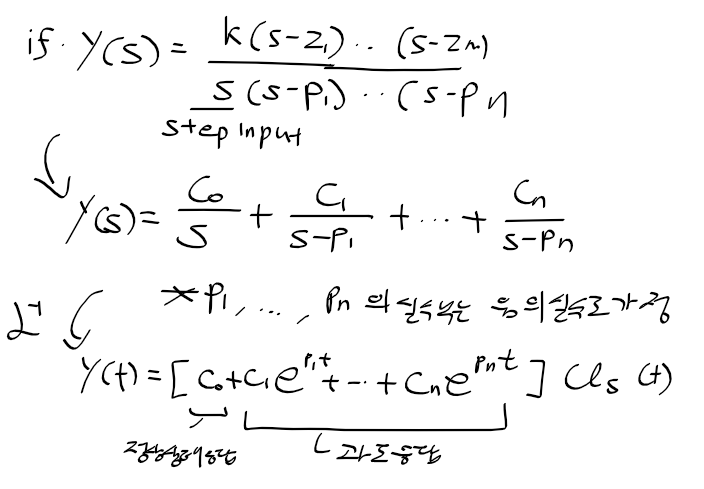 if. Y(s) = k(s-z₁)..(s-zₘ) / s(s-p₁)..(s-pn
step input
Y(s) = C₀/s + C₁/(s-p₁) + ... + Cn/(s-pn)
*p₁, ..., pn 의 실수부는 음의 실수로 가정
ℒ⁻¹
y(t) = [C₀+C₁e^{p₁t}+...+Cne^{pnt}] Us (t)
정상상태응답 과도응답